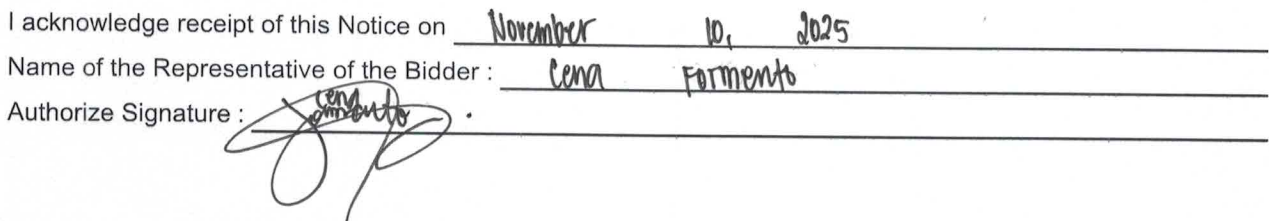 I acknowledge receipt of this Notice on November 10, 2025
Name of the Representative of the Bidder : Cena Formento
Authorize Signature : Cena Formento